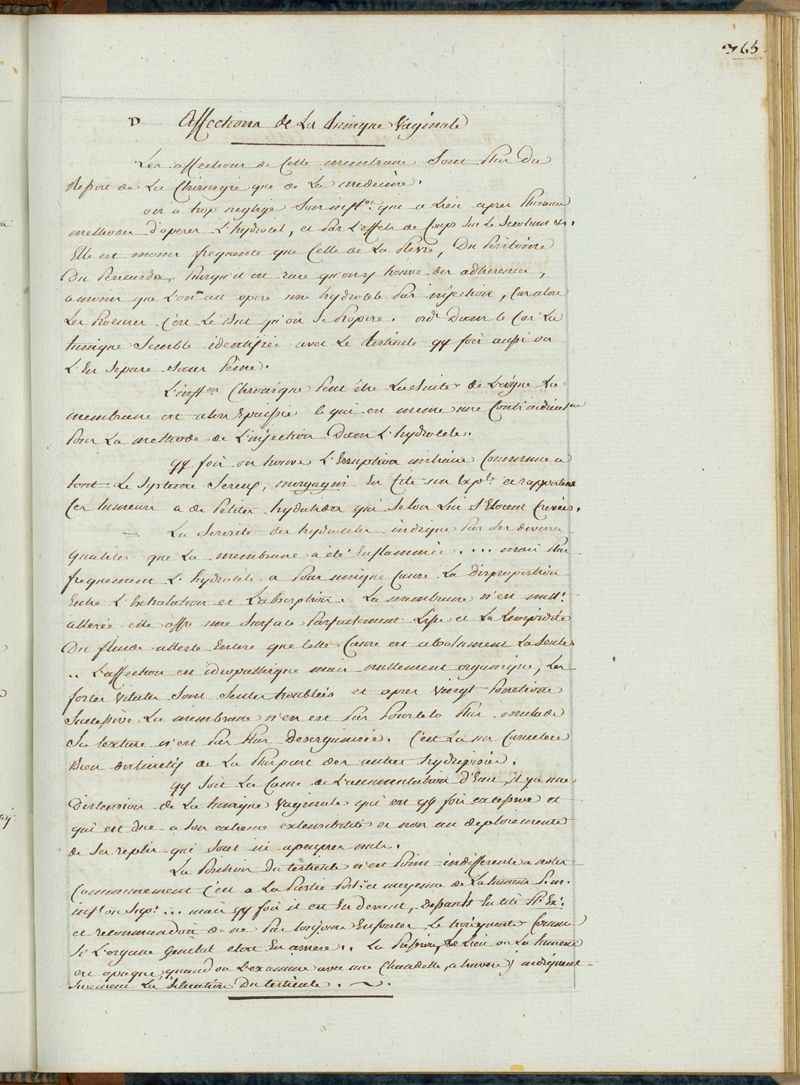 365
D affections de La tunique vaginale
Les affections de Cette membrane Sont Plus du
Resort de La Chirurgie que de La medecine.
on a trop negligé Son inflon. que a Lieu apres Plusieurs
methodes d'operer L'hydrocel, et Par L'effets de Coups Sur Le Scrotum &c.
Elle est moins frequente que Celle de La Plevre, Du Peritoine
Du Pericarde, Puisqu'il est rare qu'on y trouve des adherences,
a moins que L'on ait operé une hydrocele Par injection, Car alors
Les Procurer C'est Le But qu'on Se Propose. Dans le Cas La
tunique Semble identifiée avec Le testicule qq fois aussi on
L'En Separe Sans Peine.
L'inflon Chronique Peut être La Suite de L'aigue La
membrane est alors Epaissie ce qui est meme une Contreindication
Pour La methode de L'injection Dans L'hydrocele.
qq fois on trouve L'Eruption miliaire Commune a
tout Le Systeme Sereux, morgagni En Cite un Exple. et rapporte
Ces tumeurs a de Petites hydatides qui Selon Lui S'Etoient Crevées.
La Serosité des hydroceles indique Par Ses diverses
qualités que La membrane a été Enflammée.... mais Plus
frequement L'hydrocele a Pour unique Cause La disproportion
Entre L'Exhalation et L'absorption. La membrane n'est nullt.
alterée elle offre une Surface Parfaitement Lisse et La Limpidité
Du fluide atteste Encore que Cette Cause est absolument La Seule.
.. L'affection est idiopathique mais nullement organique, Les
forces vitales Sont Seules troublées et apres vingt Ponctions
Successives La membrane n'en est Pas Pour cela Plus malade
Sa texture n'est Pas Plus Desorganisée. C'est La un Caractere
Bien distinctif de La Plupart des autres hydropisies.
qq Soit La Cause de L'accumulation d'Eau, il y a une
Distension de La tunique vaginale qui est qq fois excessive et
qui est Due a Son extreme extensibilité et non au deploiement
de Ses replis qui Sont ici apeupres nuls.
La Position Du testicule n'est Point indifferente a noter
Communement C'est a La Partie Postre et moyenne de La tumeur
... mais qq fois il est En devant,
et recommandon de ne Pas toujours Enfoncer Le Comme
Si L'organe Genital etoit En arriere. .. La Lieu ou La tumeur
est opaque quand on L'examine avec une Chandelle a travers) indiquent
Surement La Situation Du testicule.